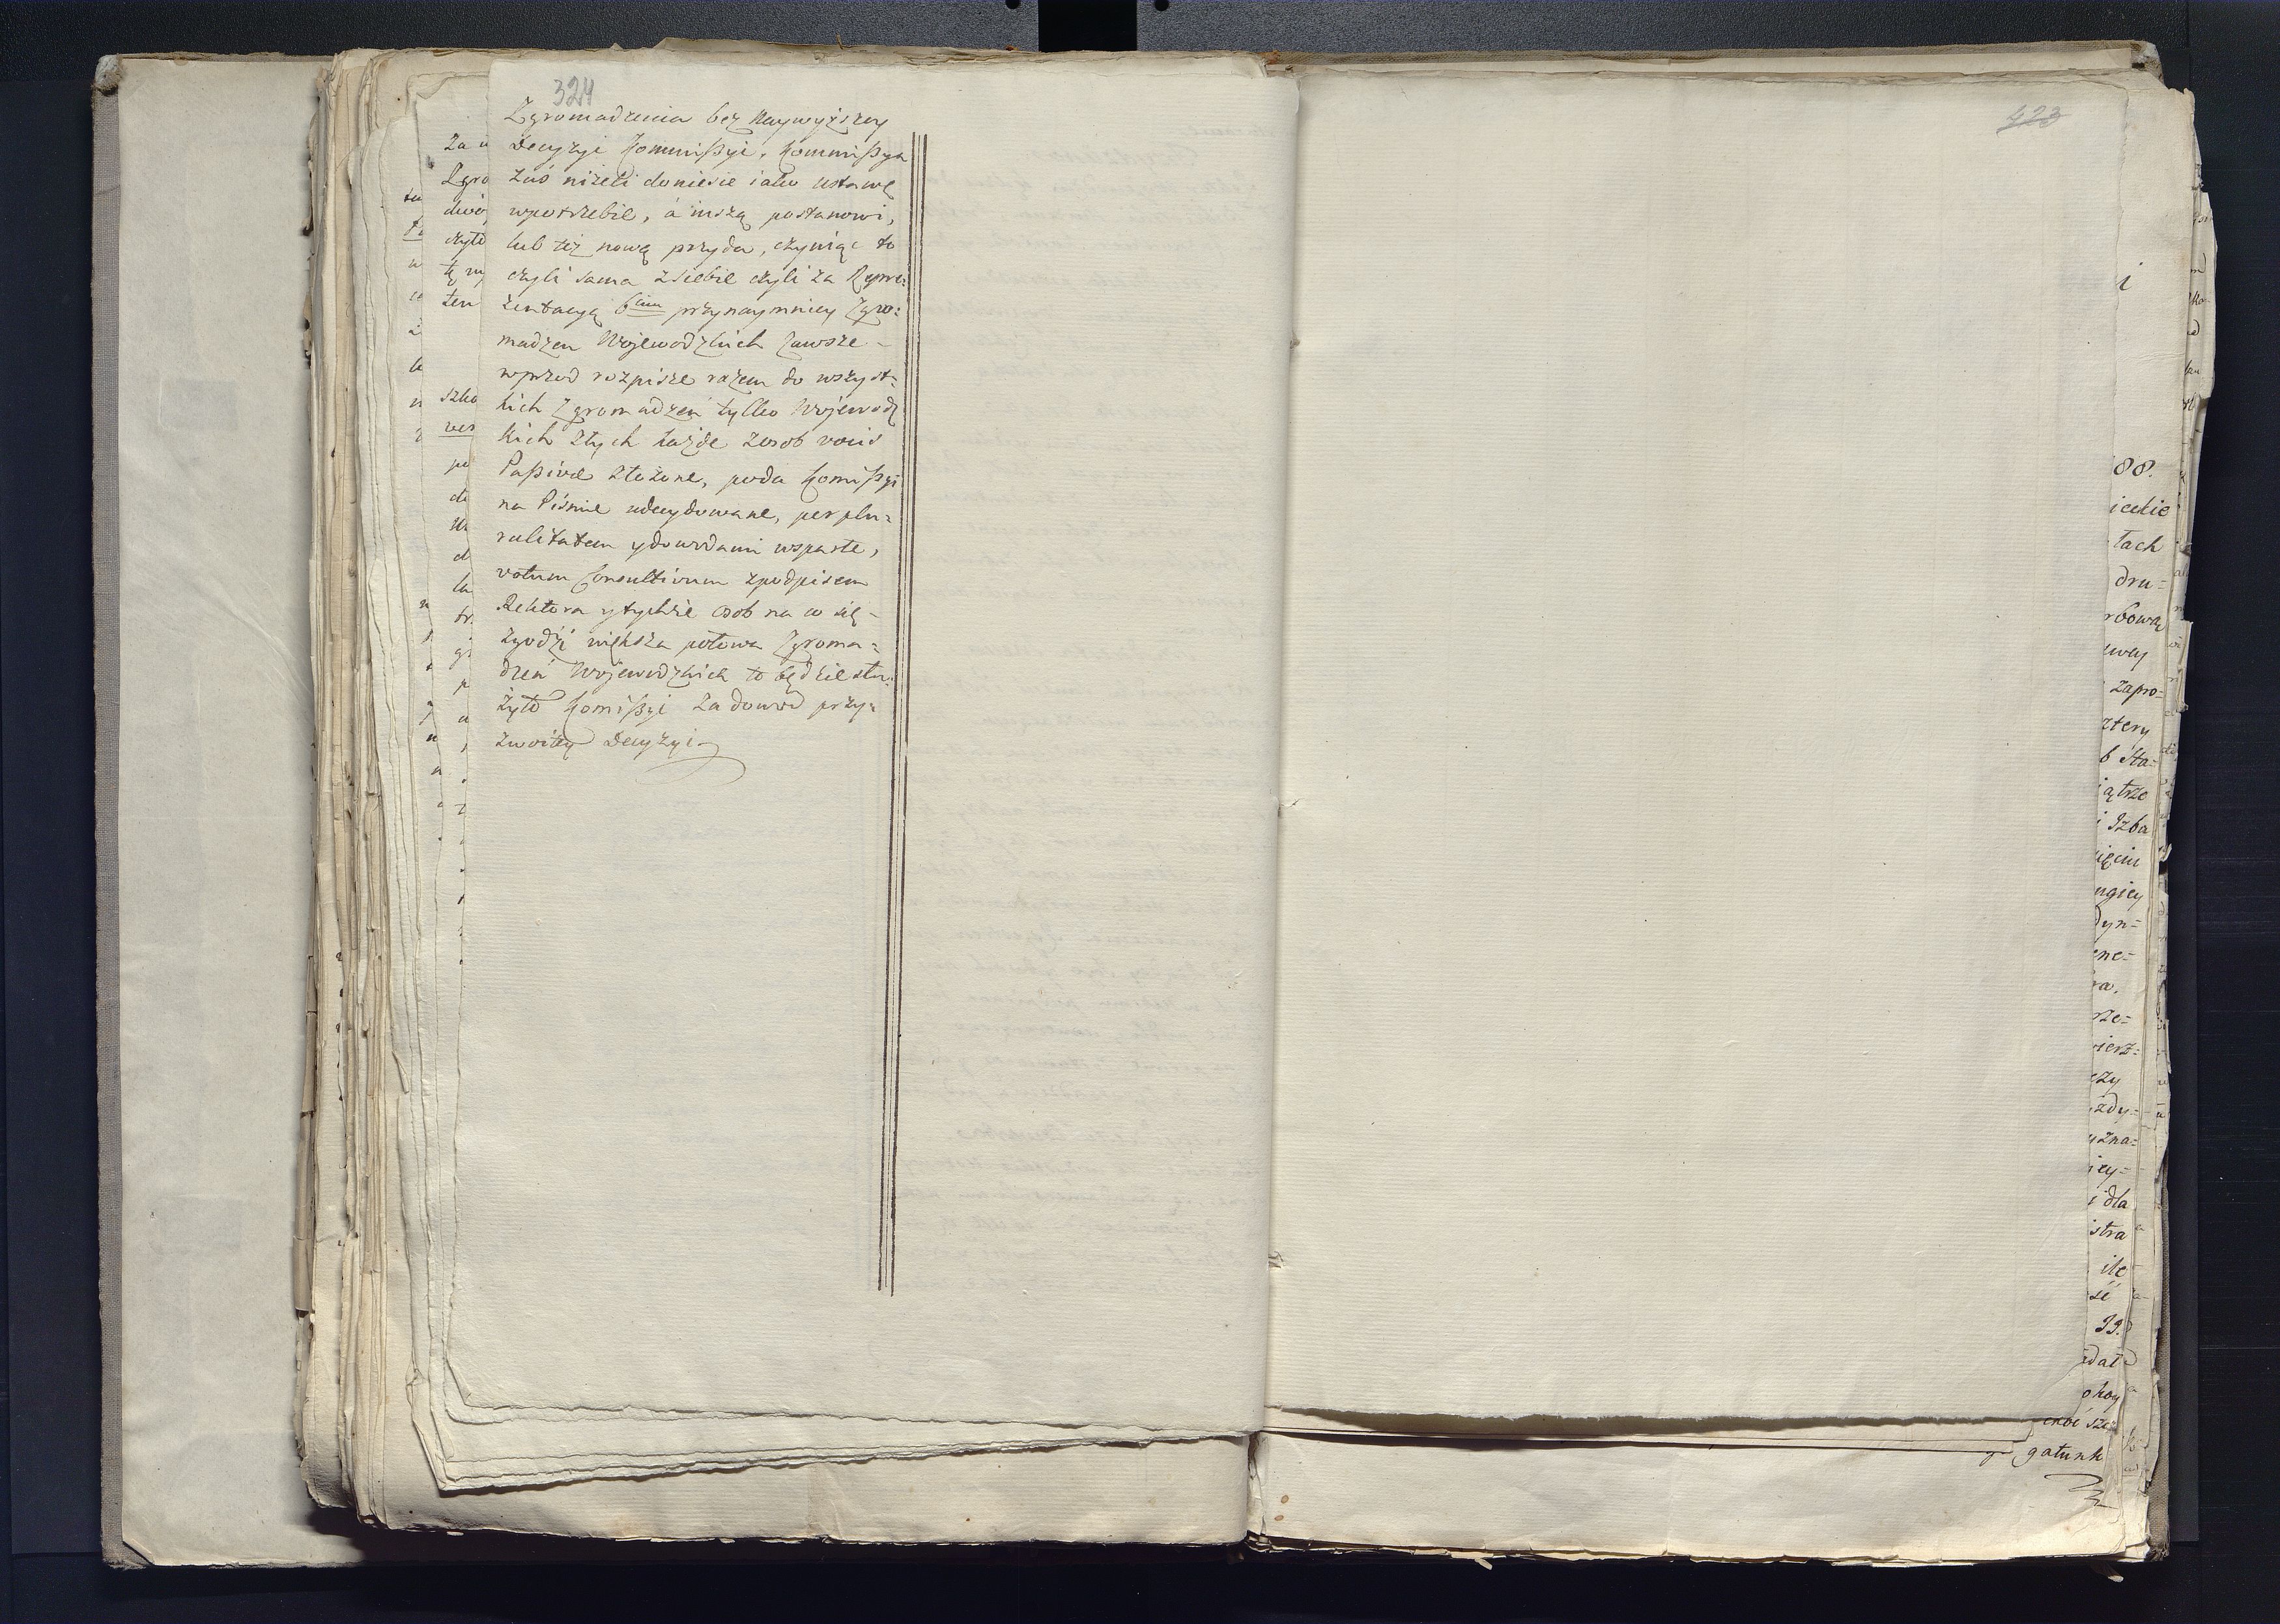 324
Zgromadzenia bez Naywyższey
Decyzyi Kommißyi, Kommißya
zaś niżeli doniesie iako Ustawę
wpotrzebie, á inszą postanowi,
lub też nową przyda, czyniąc to
czyli sama zsiebie czyli za Repre=
zentacyą 6ciu przynaymniey Zgro=
madzen Wojewodzkich Zawsze
wprzod rozpisze razem do wszyst=
kich Zgromadzeń tylko Wojewodz
kich ztych każde zosob vocis
Paßivæ złożone, poda Komißyi
na Piśmie udecydowane, per plu=
ralitatem y dowodami wsparte,
votum Consultivum zpodpisem
Rektora y tychże osob na co się
zgodzi większa połowa Zgroma=
dzeń Wojewodzkich to będzie słu=
żyło Komißyi Za dowod przy=
zwoitey Decyzyi
423
i
88.
ickie
tach
dru=
rbową
zapro=
cztery
b Sta=
ątrze
Izba
ugiey
dyn=
ene=
ra.
rze=
ierz=
czy
zdy=
zna=
icy=
i dla
stra
ile
sé
39.
dał
okoy
gatunk